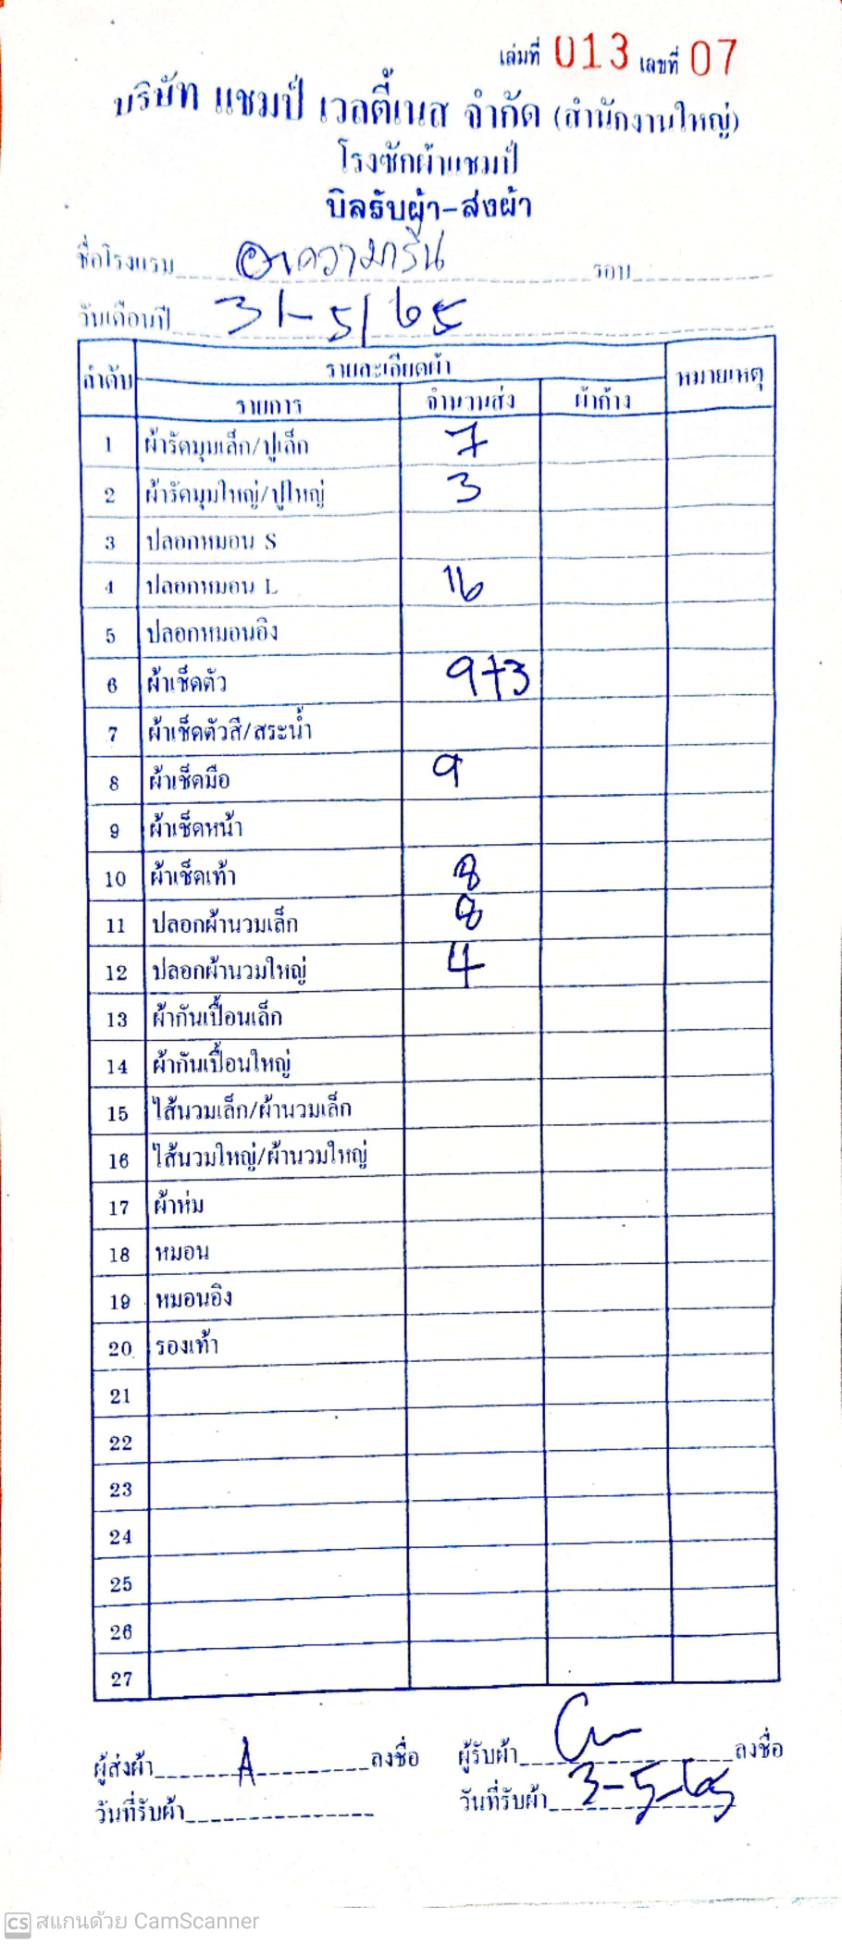 เล่มที่ 013 เลขที่ 07
บริษัท แชมป์ เวลตี้เนส จำกัด (สำนักงานใหญ่)
โรงซักผ้าแชมป์
บิลรับผ้า-ส่งผ้า
ชื่อโรงแรม อความกรีน รอบ
วันเดือนปี 31-5/65
ลำดับ รายละเอียดผ้า หมายเหตุ
รายการ จำนวนส่ง ผ้าค้าง
1 ผ้ารัดมุมเล็ก/ปูเล็ก 7
2 ผ้ารัดมุมใหญ่/ปูใหญ่ 3
3 ปลอกหมอน S
4 ปลอกหมอน L 16
5 ปลอกหมอนอิง
6 ผ้าเช็ดตัว 9+3
7 ผ้าเช็ดตัวสี/สระน้ำ
8 ผ้าเช็ดมือ 9
9 ผ้าเช็ดหน้า
10 ผ้าเช็ดเท้า 8
11 ปลอกผ้านวมเล็ก 8
12 ปลอกผ้านวมใหญ่ 4
13 ผ้ากันเปื้อนเล็ก
14 ผ้ากันเปื้อนใหญ่
15 ไส้นวมเล็ก/ผ้านวมเล็ก
16 ไส้นวมใหญ่/ผ้านวมใหญ่
17 ผ้าห่ม
18 หมอน
19 หมอนอิง
20 รองเท้า
21
22
23
24
25
26
27
ผู้ส่งผ้า A ลงชื่อ ผู้รับผ้า ลงชื่อ
วันที่รับผ้า วันที่รับผ้า 3-5-65
CS สแกนด้วย CamScanner